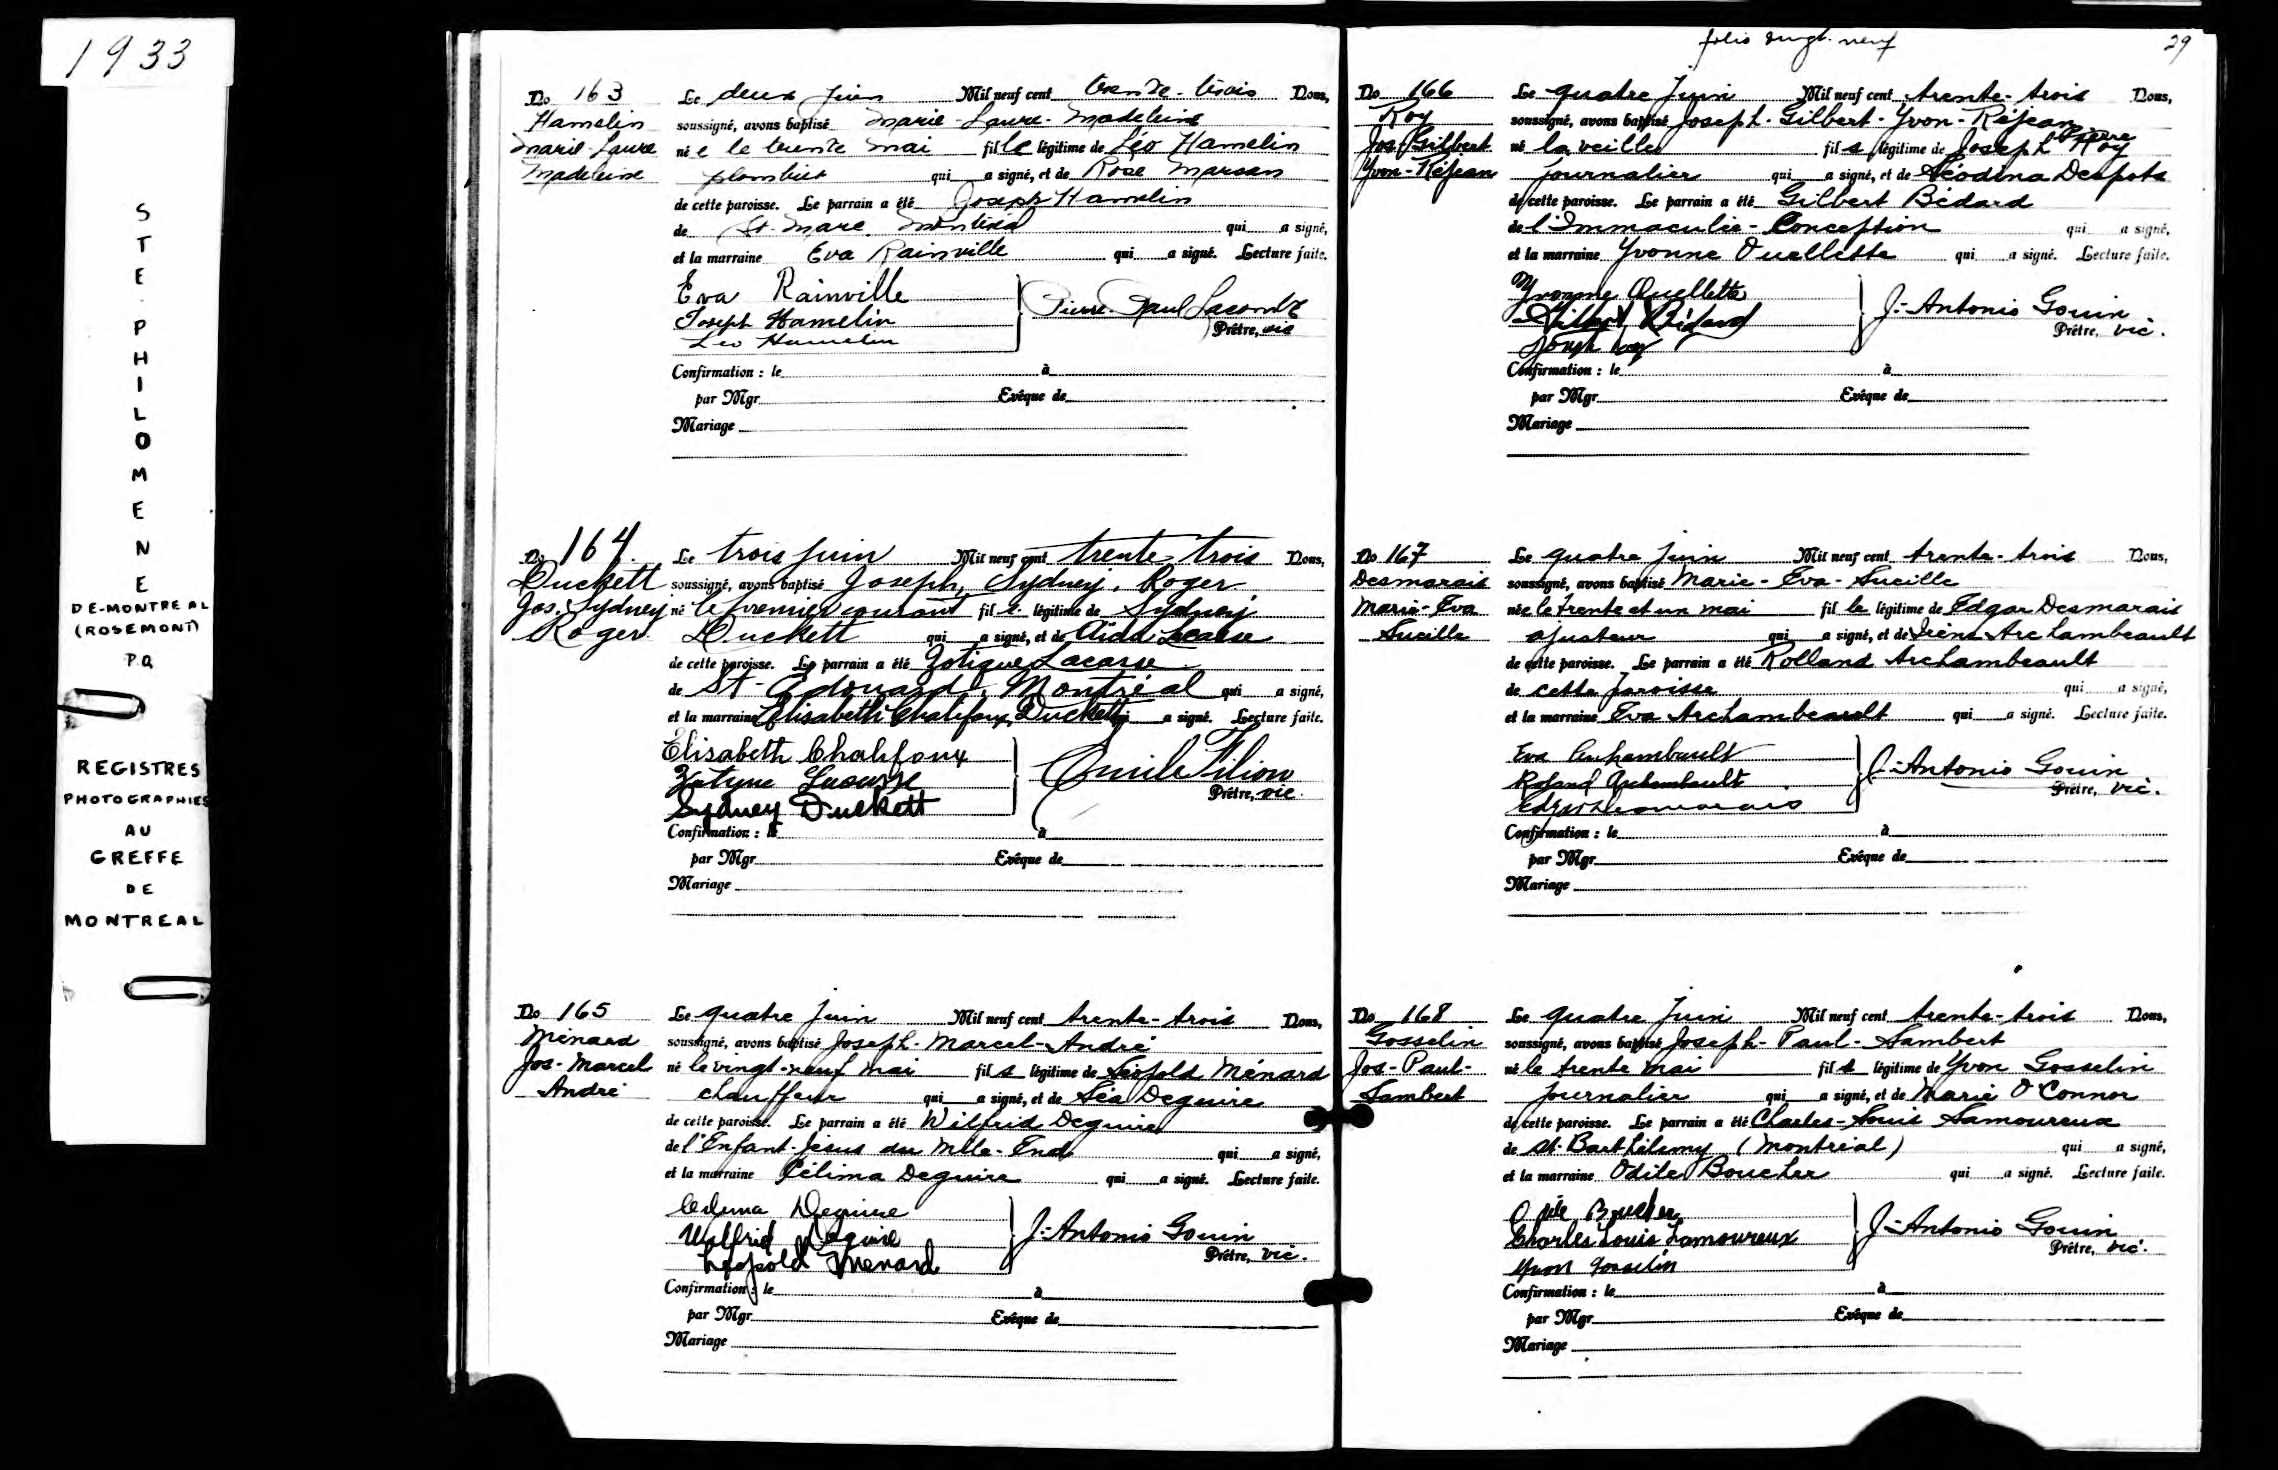 1933
STE-PHILOMENE
DE-MONTREAL
(ROSEMONT)
P.Q.
REGISTRES
PHOTOGRAPHIES
AU
GREFFE
DE
MONTREAL
No 163
Hamelin
Marie-Laure
Madeleine
Le deux juin Mil neuf cent trente-trois Nous,
soussigné, avons baptisé Marie-Laure-Madeleine
née le trente mai fille légitime de Léo Hamelin
plombier qui a signé, et de Rose Marsan
de cette paroisse. Le parrain a été Joseph Hamelin
de St-Marc, Montréal qui a signé,
et la marraine Eva Rainville qui a signé. Lecture faite.
Eva Rainville
Joseph Hamelin
Leo Hamelin
Pierre-Paul Lacombe
Prêtre, vic
Confirmation : le à
par Mgr Evêque de
Mariage
No 164.
Duckett
Jos. Sydney
Roger.
Le trois juin Mil neuf cent trente-trois Nous,
soussigné, avons baptisé Joseph, Sydney, Roger
né le premier courant fils légitime de Sydney
Duckett qui a signé, et de Aida Lacasse
de cette paroisse. Le parrain a été Zotique Lacasse
de St-Edouard, Montréal qui a signé,
et la marraine Elisabeth Chalifoux Duckett qui a signé. Lecture faite.
Elisabeth Chalifoux
Zotique Lacasse
Sydney Duckett
Emile Filion
Prêtre, vic.
Confirmation : le à
par Mgr Evêque de
Mariage
No 165
Ménard
Jos-Marcel
André
Le quatre juin Mil neuf cent trente-trois Nous,
soussigné, avons baptisé Joseph-Marcel-André
né le vingt-neuf mai fils légitime de Léopold Ménard
chauffeur qui a signé, et de Léa Deguire
de cette paroisse. Le parrain a été Wilfrid Deguire
de l'Enfant-Jésus du Mile-End qui a signé,
et la marraine Célima Deguire qui a signé. Lecture faite.
Celima Deguire
Wilfrid Deguire
Léopold Menard
J.-Antonio Gouin
Prêtre, vic.
Confirmation : le à
par Mgr Evêque de
Mariage
folio vingt-neuf 29
No 166
Roy
Jos-Gilbert
Yvon-Réjean
Le quatre juin Mil neuf cent trente-trois Nous,
soussigné, avons baptisé Joseph-Gilbert-Yvon-Réjean
né la veille fils légitime de Joseph Pierre Roy
journalier qui a signé, et de Léodina Despots
de cette paroisse. Le parrain a été Gilbert Bédard
de l'Immaculée-Conception qui a signé,
et la marraine Yvonne Ouellette qui a signé. Lecture faite.
Yvonne Ouellette
Gilbert Bédard
Joseph Roy
J.-Antonio Gouin
Prêtre, vic.
Confirmation : le à
par Mgr Evêque de
Mariage
No 167
Desmarais
Marie-Eva
Lucille
Le quatre juin Mil neuf cent trente-trois Nous,
soussigné, avons baptisé Marie-Eva-Lucille
née le trente et un mai fille légitime de Edgar Desmarais
ajusteur qui a signé, et de Irène Archambeault
de cette paroisse. Le parrain a été Rolland Archambeault
de cette paroisse qui a signé,
et la marraine Eva Archambeault qui a signé. Lecture faite.
Eva Archambault
Roland Archambault
Edgar Desmarais
J.-Antonio Gouin
Prêtre, vic.
Confirmation : le à
par Mgr Evêque de
Mariage
No 168
Gosselin
Jos-Paul-
Lambert
Le quatre juin Mil neuf cent trente-trois Nous,
soussigné, avons baptisé Joseph-Paul-Lambert
né le trente mai fils légitime de Yvon Gosselin
journalier qui a signé, et de Marie O'Connor
de cette paroisse. Le parrain a été Charles-Louis Lamoureux
de St-Barthélemy (Montréal) qui a signé,
et la marraine Odile Boucher qui a signé. Lecture faite.
Odile Boucher
Charles Louis Lamoureux
Yvon Gosselin
J.-Antonio Gouin
Prêtre, vic.
Confirmation : le à
par Mgr Evêque de
Mariage